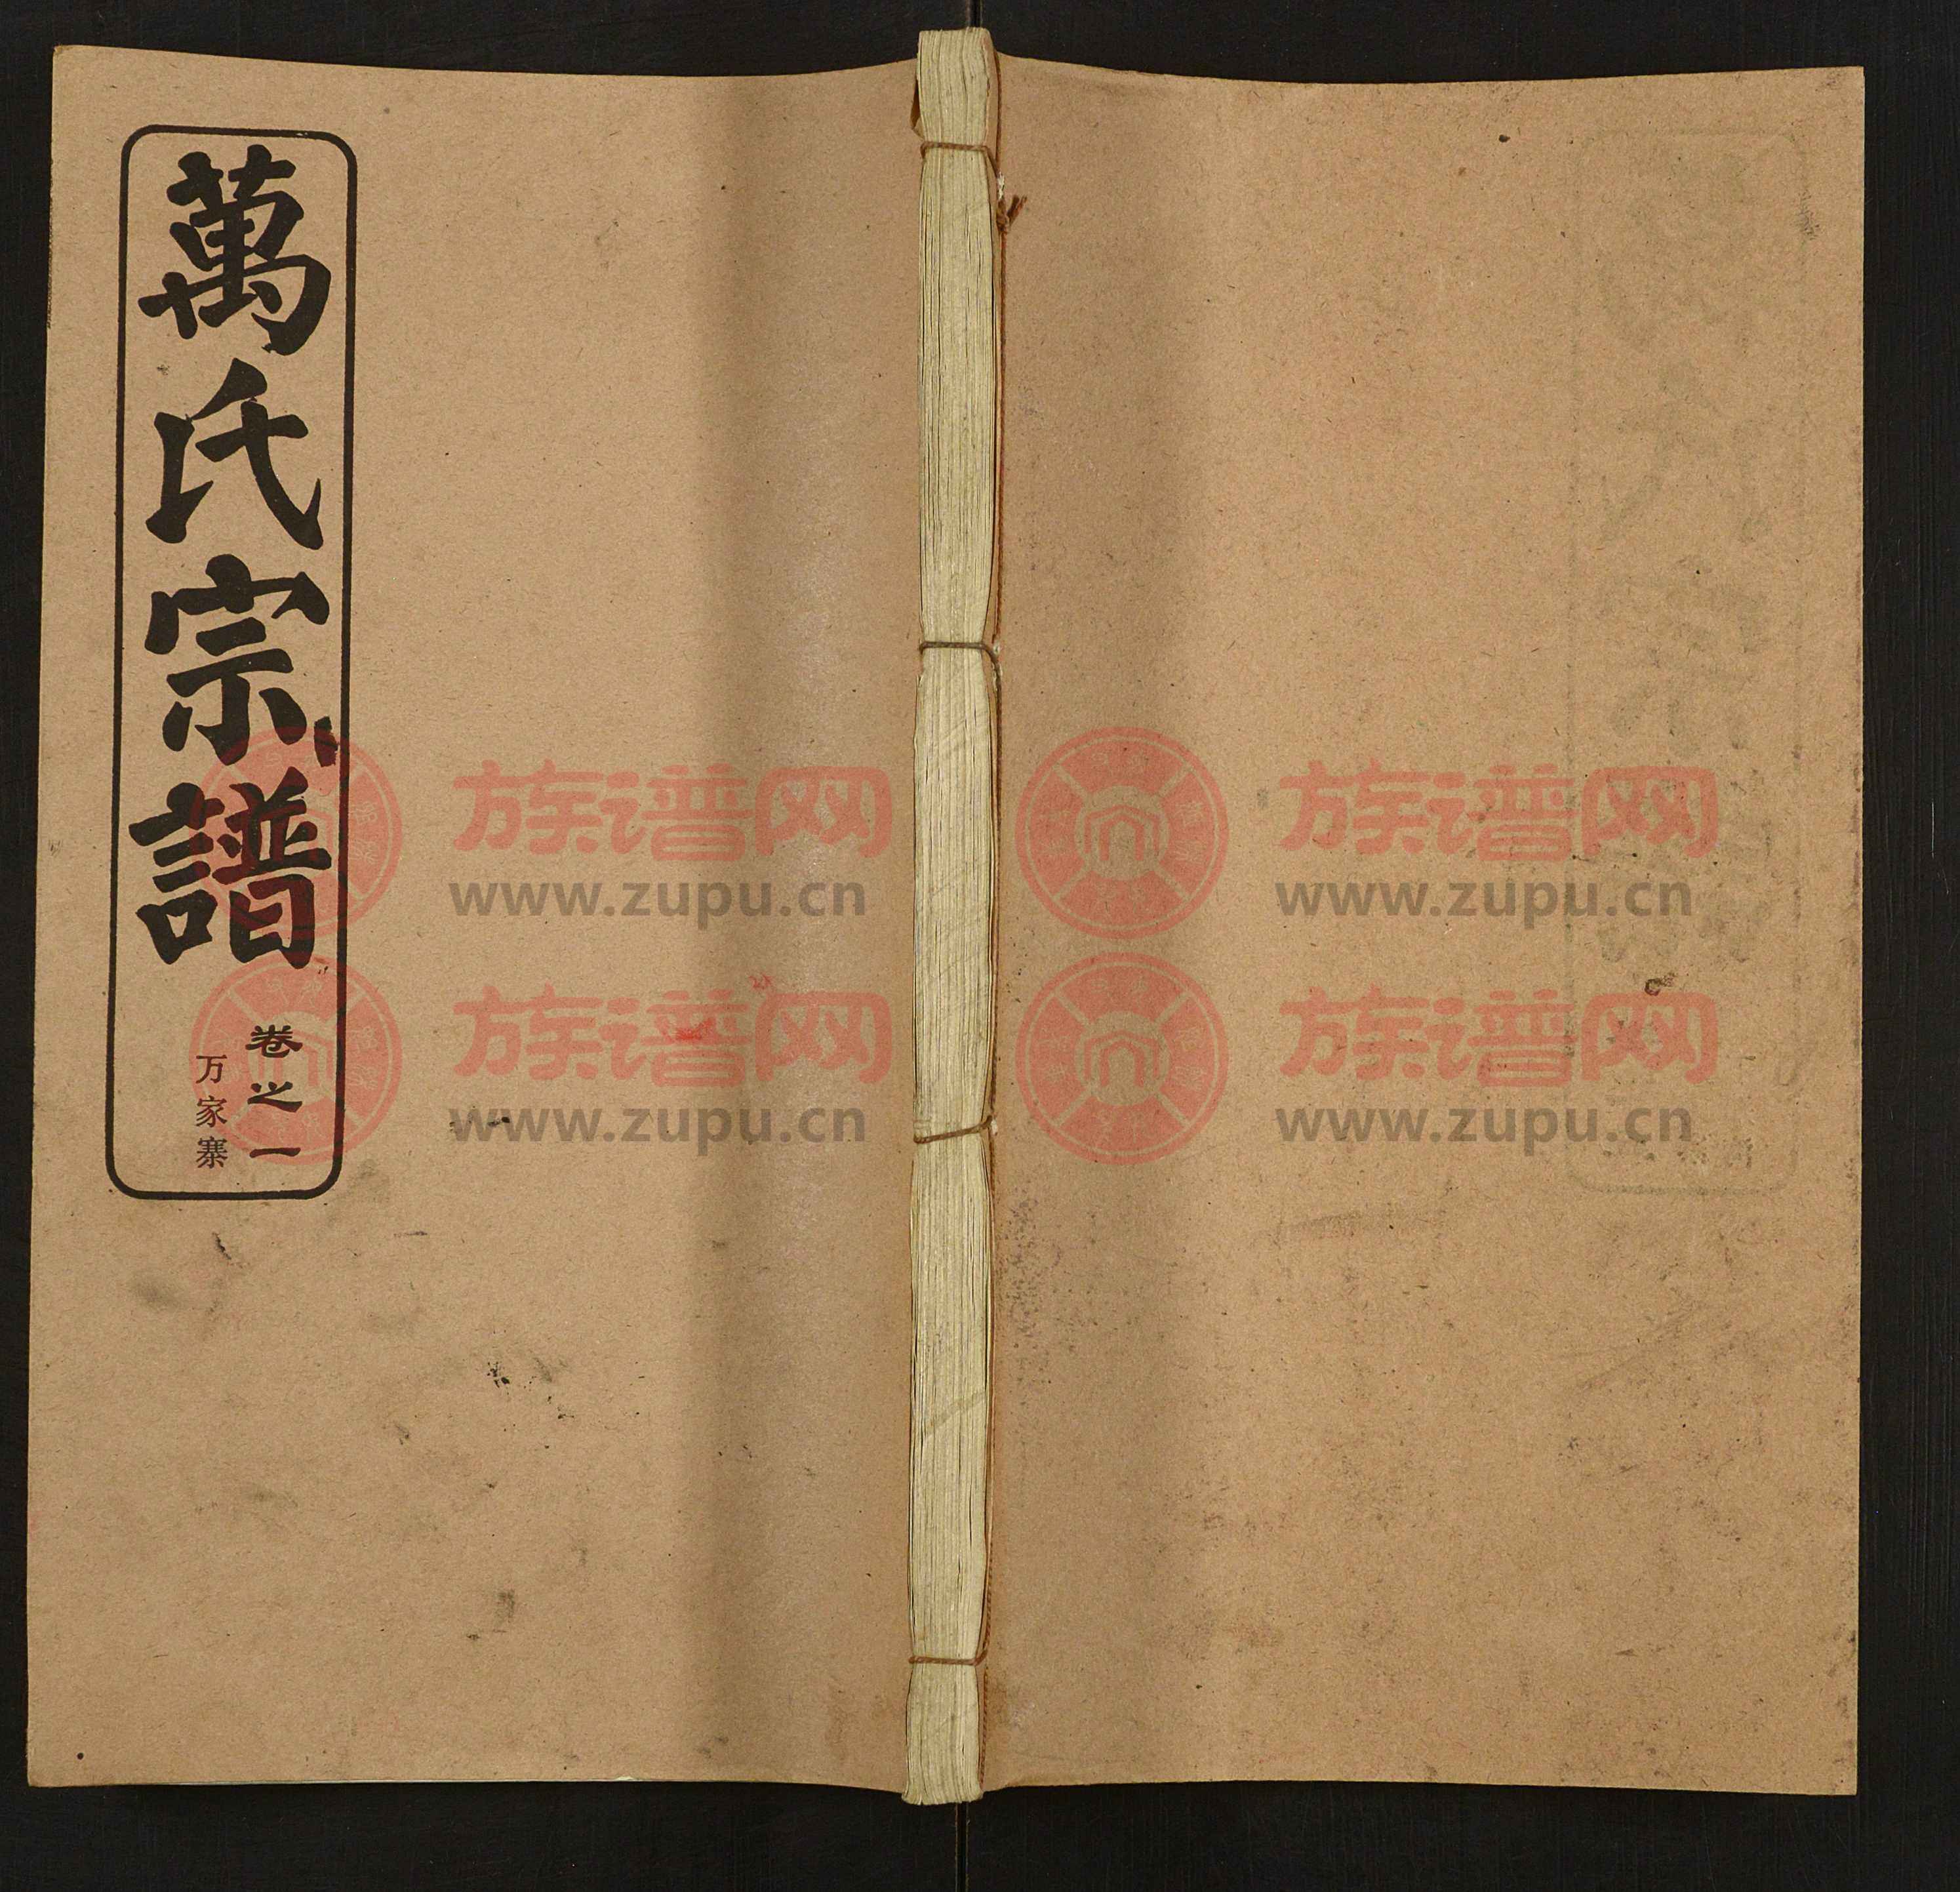 萬氏宗譜
卷之一
万家寨
族谱网
www.zupu.cn
族谱网
www.zupu.cn
族谱网
www.zupu.cn
族谱网
www.zupu.cn